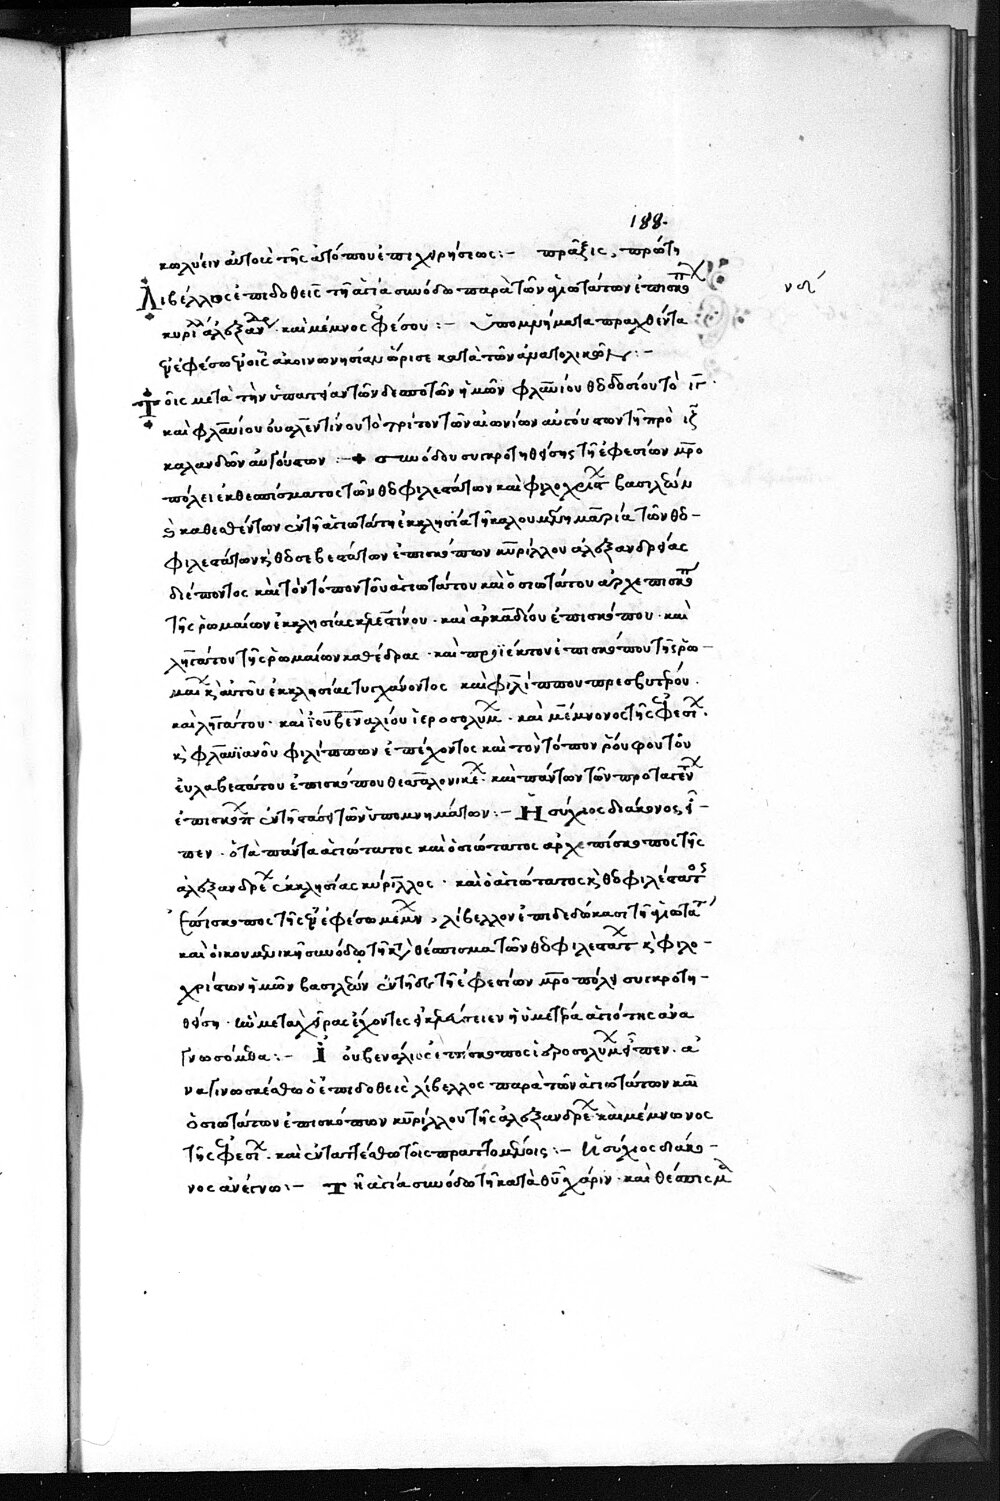 188.
κωλύειν αὐτοὺς τῆς ἀτόπου ἐπιχειρήσεως :- πρᾶξις, πρώτη
Λίβελλος ἐπιδοθεὶς τῆ ἁγία συνόδω παρὰ τῶν ἁγιωτάτων ἐπισκοπ
κυρίλλ ἀλεξαν καὶ μέμνος ἐφέσου :- Ὑπομνήματα πραχθέντα
ἐν ἐφέσω ἐν οἷς ἀκοινωνησίαν ὥρισε κατὰ τῶν ἀνατολικῶν :-
Τοῖς μετὰ τὴν ὑπατείαν τῶν δεσποτῶν ἡμῶν φλαυίου θεοδοσίου τὸ ιγ
καὶ φλαυίου οὐαλεντίνου τὸ τρίτον τῶν αἰωνίων αὐγούστων τῆ πρὸ ιζ
καλανδῶν αὐγούστων :- συνόδου συγκροτηθείσης τῆ ἐφεσίων μρο
πόλει ἐκ θεσπίσματος τῶν θεοφιλεστάτων καὶ φιλοχρίστ βασιλέων
καὶ καθεσθέντων ἐν τῆ ἁγιωτάτη ἐκκλησία τῆ καλουμένη μαρία τῶν θεο-
φιλεστάτων καὶ θεοσεβεστάτων ἐπισκόπων κυρίλλου ἀλεξανδρείας
διέποντος καὶ τὸν τόπον τοῦ ἁγιωτάτου καὶ ὁσιωτάτου ἀρχεπισκό
τῆς ῥωμαίων ἐκκλησίας κελεστίνου · καὶ ἀρκαδίου ἐπισκόπου · καὶ
ληγάτου τῆς ῥωμαίων καθέδρας · καὶ προϊέκτου ἐπισκόπου τῆς ῥω-
μαικ καὶ αὐτοῦ ἐκκλησίας τυγχάνοντος καὶ φιλίππου πρεσβυτέρου ·
καὶ ληγάτου · καὶ ἰουβεναλίου ἱεροσολύμ · καὶ μέμνονος τῆς ἐφεσί ·
καὶ φλαυϊανοῦ φιλίππων ἐπέχοντος καὶ τὸν τόπον ῥούφου τοῦ
εὐλαβεστάτου ἐπισκόπου θεσσαλονίκ · καὶ πάντων τῶν προταγέν
ἐπισκόπ ἐν τῆ τάξει τῶν ὑπομνημάτων :- Ἡσύχιος διάκονος, εἶ-
πεν · ὁ τὰ πάντα ἁγιώτατος καὶ ὁσιώτατος ἀρχεπίσκοπος τῆς
ἀλεξανδρέ ἐκκλησίας κύριλλος · καὶ ὁ ἁγιώτατος καὶ θεοφιλέστατος
ἐπίσκοπος τῆς ἐν ἐφέσω μέμν, λίβελλον ἐπιδεδώκασι τῆ ἁγιωτά
καὶ οἰκουμενικῆ συνόδω τῆ κατὰ θέσπισμα τῶν θεοφιλεστάτ καὶ φιλο-
χρίστων ἡμῶν βασιλέων ἐν τῆδε τῆ ἐφεσίων μρο πόλει συγκροτη-
θείση · ὃν μετὰ χεῖρας ἔχοντες εἰ κελεύσειεν ἡ ὑμετέρα ἁγιότης ἀνα
γνωσόμεθα :- Ἰουβενάλιος ἐπίσκοπος ἱεροσολύμ εἶπεν · ἀ
ναγινωσκέσθω ὁ ἐπιδοθεὶς λίβελλος παρὰ τῶν ἁγιωτάτων καὶ
ὁσιωτάτων ἐπισκόπων κυρίλλου τῆς ἀλεξανδρέ καὶ μέμνωνος
τῆς ἐφεσί · καὶ ἐνταττέσθω τοῖς πραττομένοις :- Ἡσύχιος διάκο-
νος ἀνέγνω :- Τῆ ἁγία συνόδω τῆ κατὰ θυ χάριν · καὶ θέσπισμ